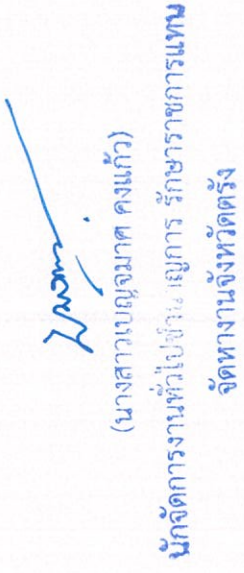 (นางสาวเบญจมาศ คงแก้ว)
นักจัดการงานทั่วไปชำนาญการ รักษาราชการแทน
จัดหางานจังหวัดตรัง